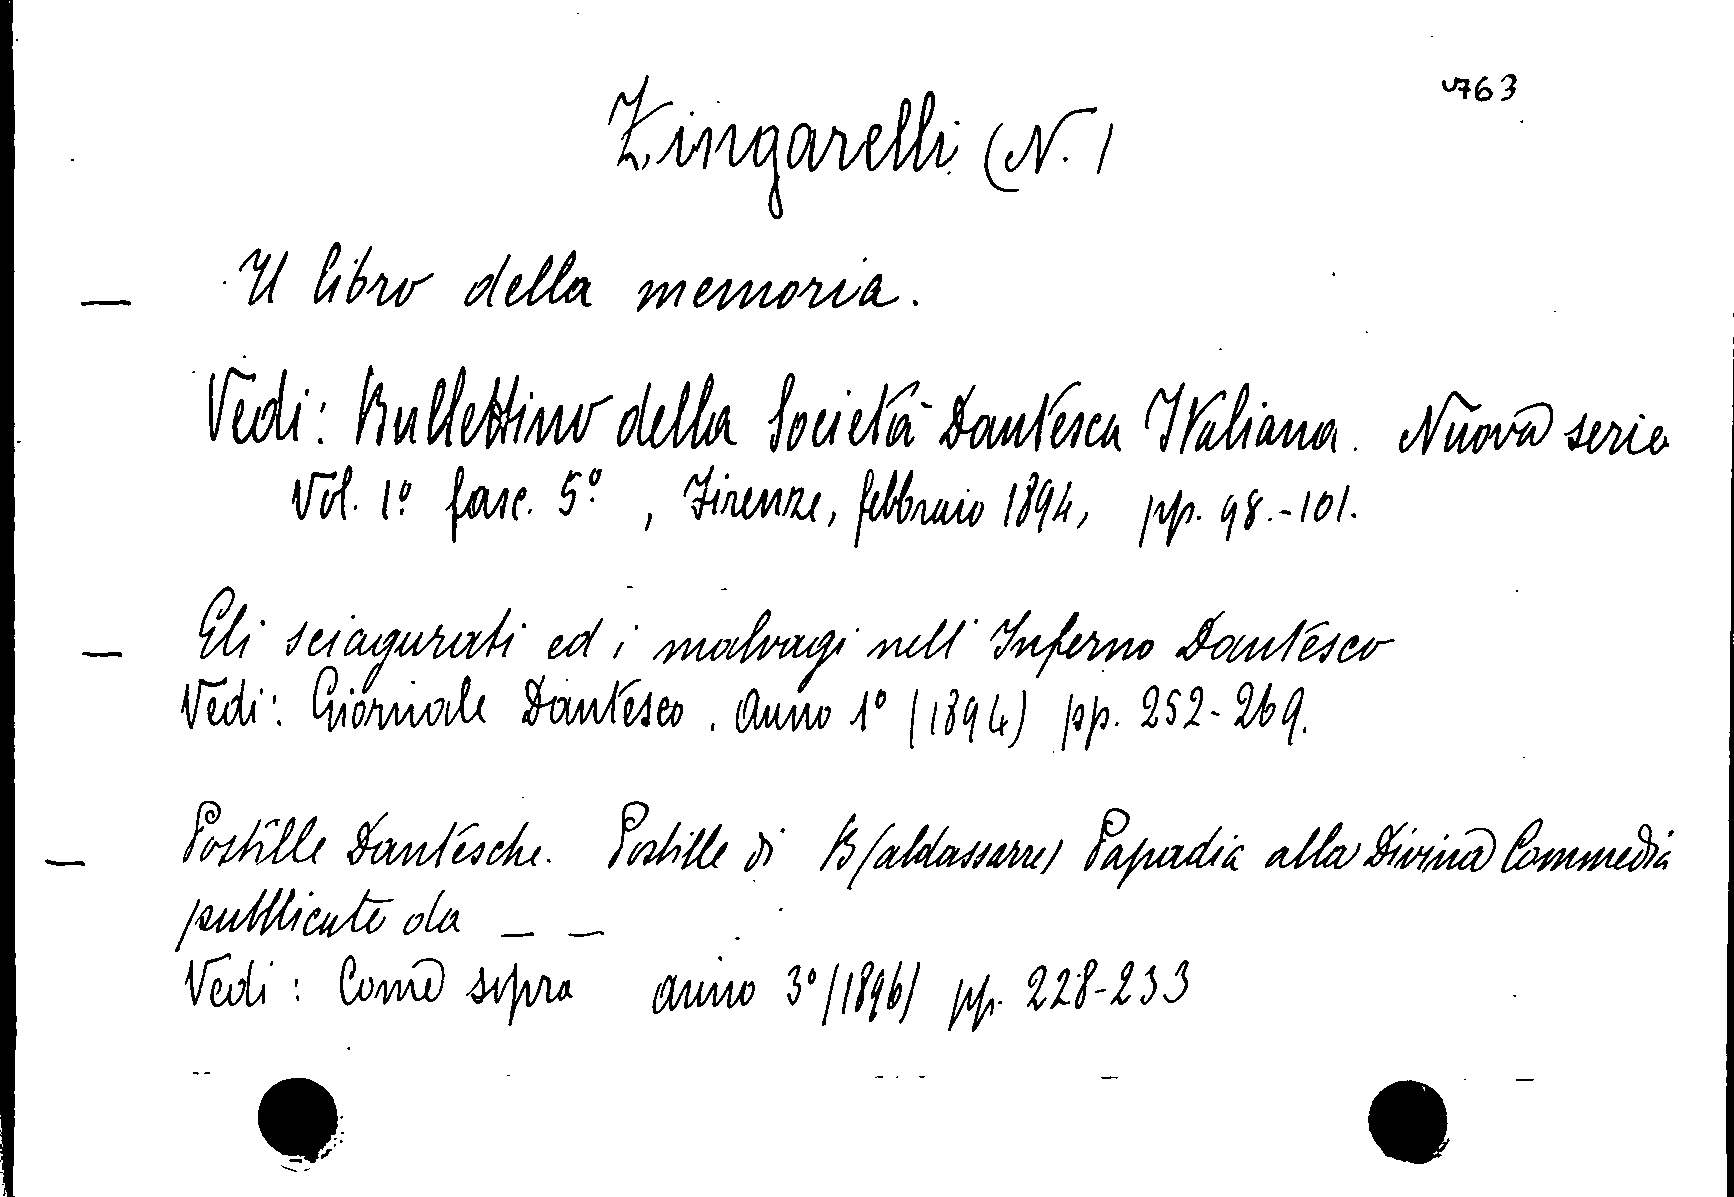 763
Zingarelli (N.)
— Il libro della memoria.
Vedi: Bullettino della Società Dantesca Italiana. Nuova serie
Vol. 1º fasc. 5º, Firenze, febbraio 1894, pp. 98.-101.
— Gli sciagurati ed i malvagi nell'Inferno Dantesco
Vedi: Giornale Dantesco. Anno 1º (1894) pp. 252-269.
— Postille Dantesche. Postille di B(aldassarre) Papadia alla Divina Commedia
pubblicate da — —
Vedi: Come sopra anno 3º (1896) pp. 228-233